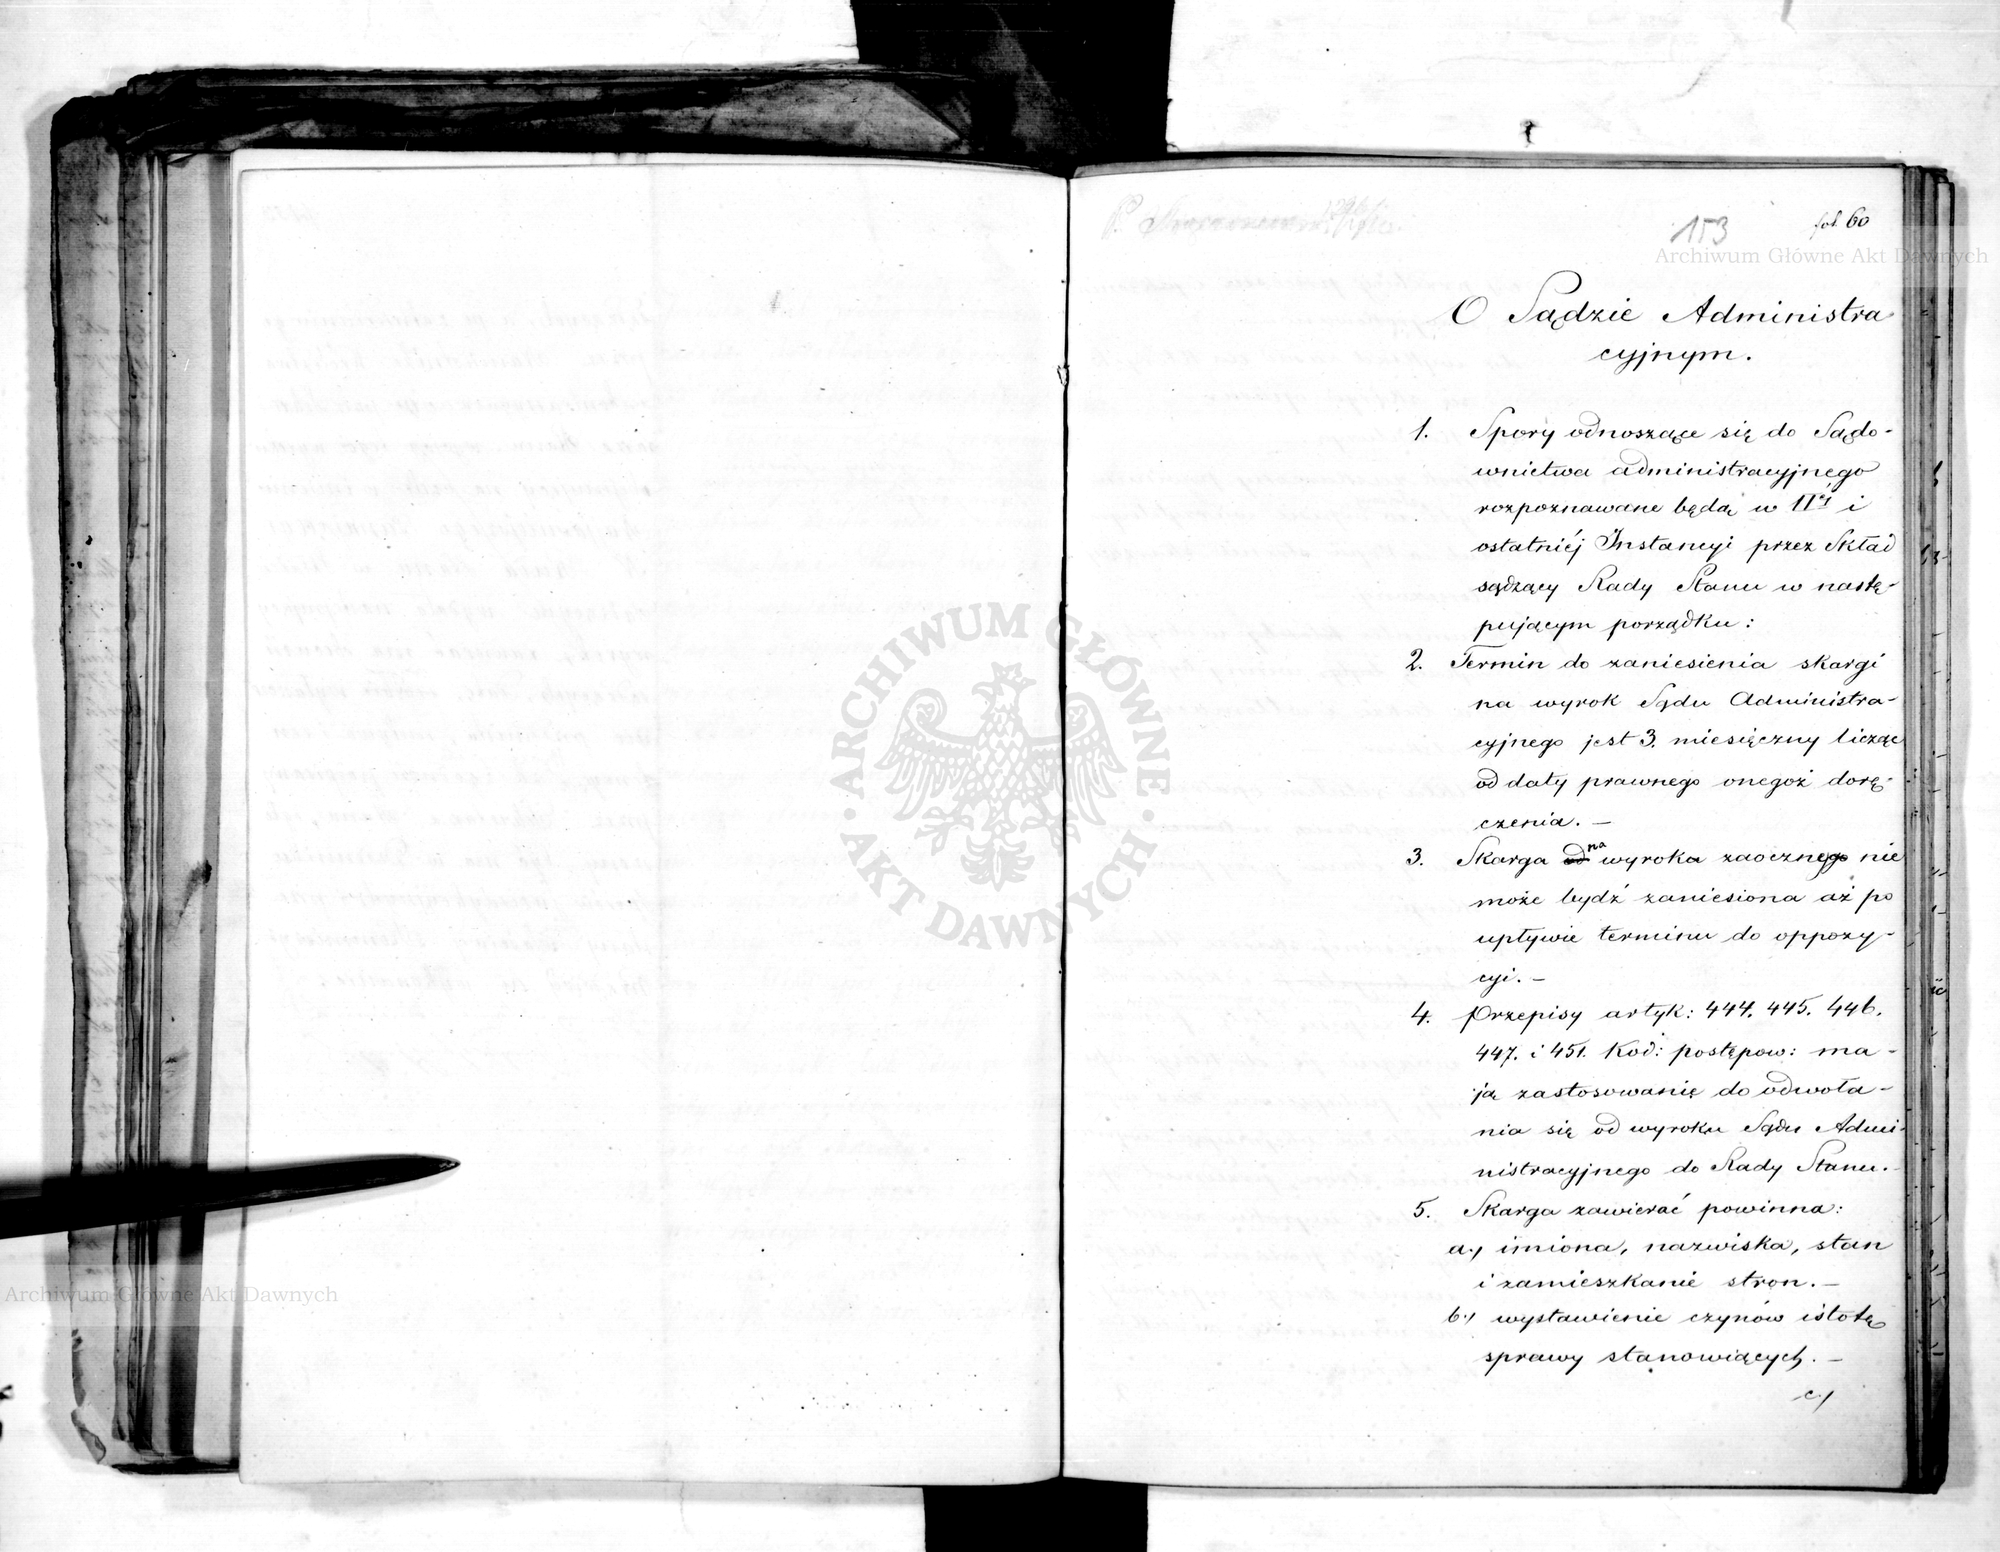 153
fol. 60
O Sądzie Administra
cyjnym.
1. Spory odnoszące się do Sądo-
wnictwa administracyjnego
rozpoznawane będą w IIej i
ostatniéj Instancyi przez Skład
sądzący Rady Stanu w nastę-
pującym porządku:
2. Termin do zaniesienia skargi
na wyrok Sądu Administra-
cyjnego jest 3. miesięczny licząc
od daty prawnego onegoż dorę-
czenia. —
3. Skarga od na wyroka zaocznego nie
może bydź zaniesiona aż po
upływie terminu do oppozy-
cyi. —
4. Przepisy artyk: 444. 445. 446.
447. i 451. Kod: postępow: ma-
ją zastosowanie do odwoła-
nia się od wyroku Sądu Admi-
nistracyjnego do Rady Stanu. -
5. Skarga zawierać powinna:
a./ imiona, nazwiska, stan
i zamieszkanie stron. —
b./ wystawienie czynów istotę
sprawy stanowiących. —
c./
Archiwum Główne Akt Dawnych
ARCHIWUM GŁÓWNE
AKT DAWNYCH
Archiwum Główne Akt Dawnych